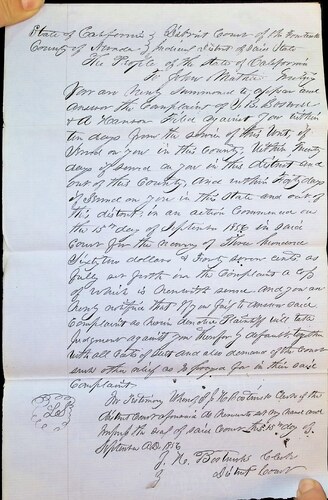 State of California } District Court of the Fourteenth
County of Nevada } Judicial District of said State
The People of the State of California
To John Greeting
You are hereby Summoned to appear and
answer the Complaint of
& A Hanson filed against you within
ten days from the service of this Writ, if
Served on you in this County, within Twenty
days if served on you in this district and
out of this County, and within Forty days
if Served on you in this State and out of
this district, in an action Commenced on
the 15th day of September 1856 in said
Court for the recovery of Three hundred
Sixty two dollars & Forty seven cents as
fully set forth in the Complaint a copy
of which is herewith served and you are
hereby notified that if you fail to answer said
Complaint as herein directed Plaintiff will take
Judgment against you therefor by default, together
with all costs of suit and also demand of the Court
such other relief as is prayed for in their said
Complaint
In Testimony Whereof I Clerk of the
District Court aforesaid do hereunto set my Name and
impress the seal of said Court this 15th day of
September A.D. 1856
Clerk
District Court